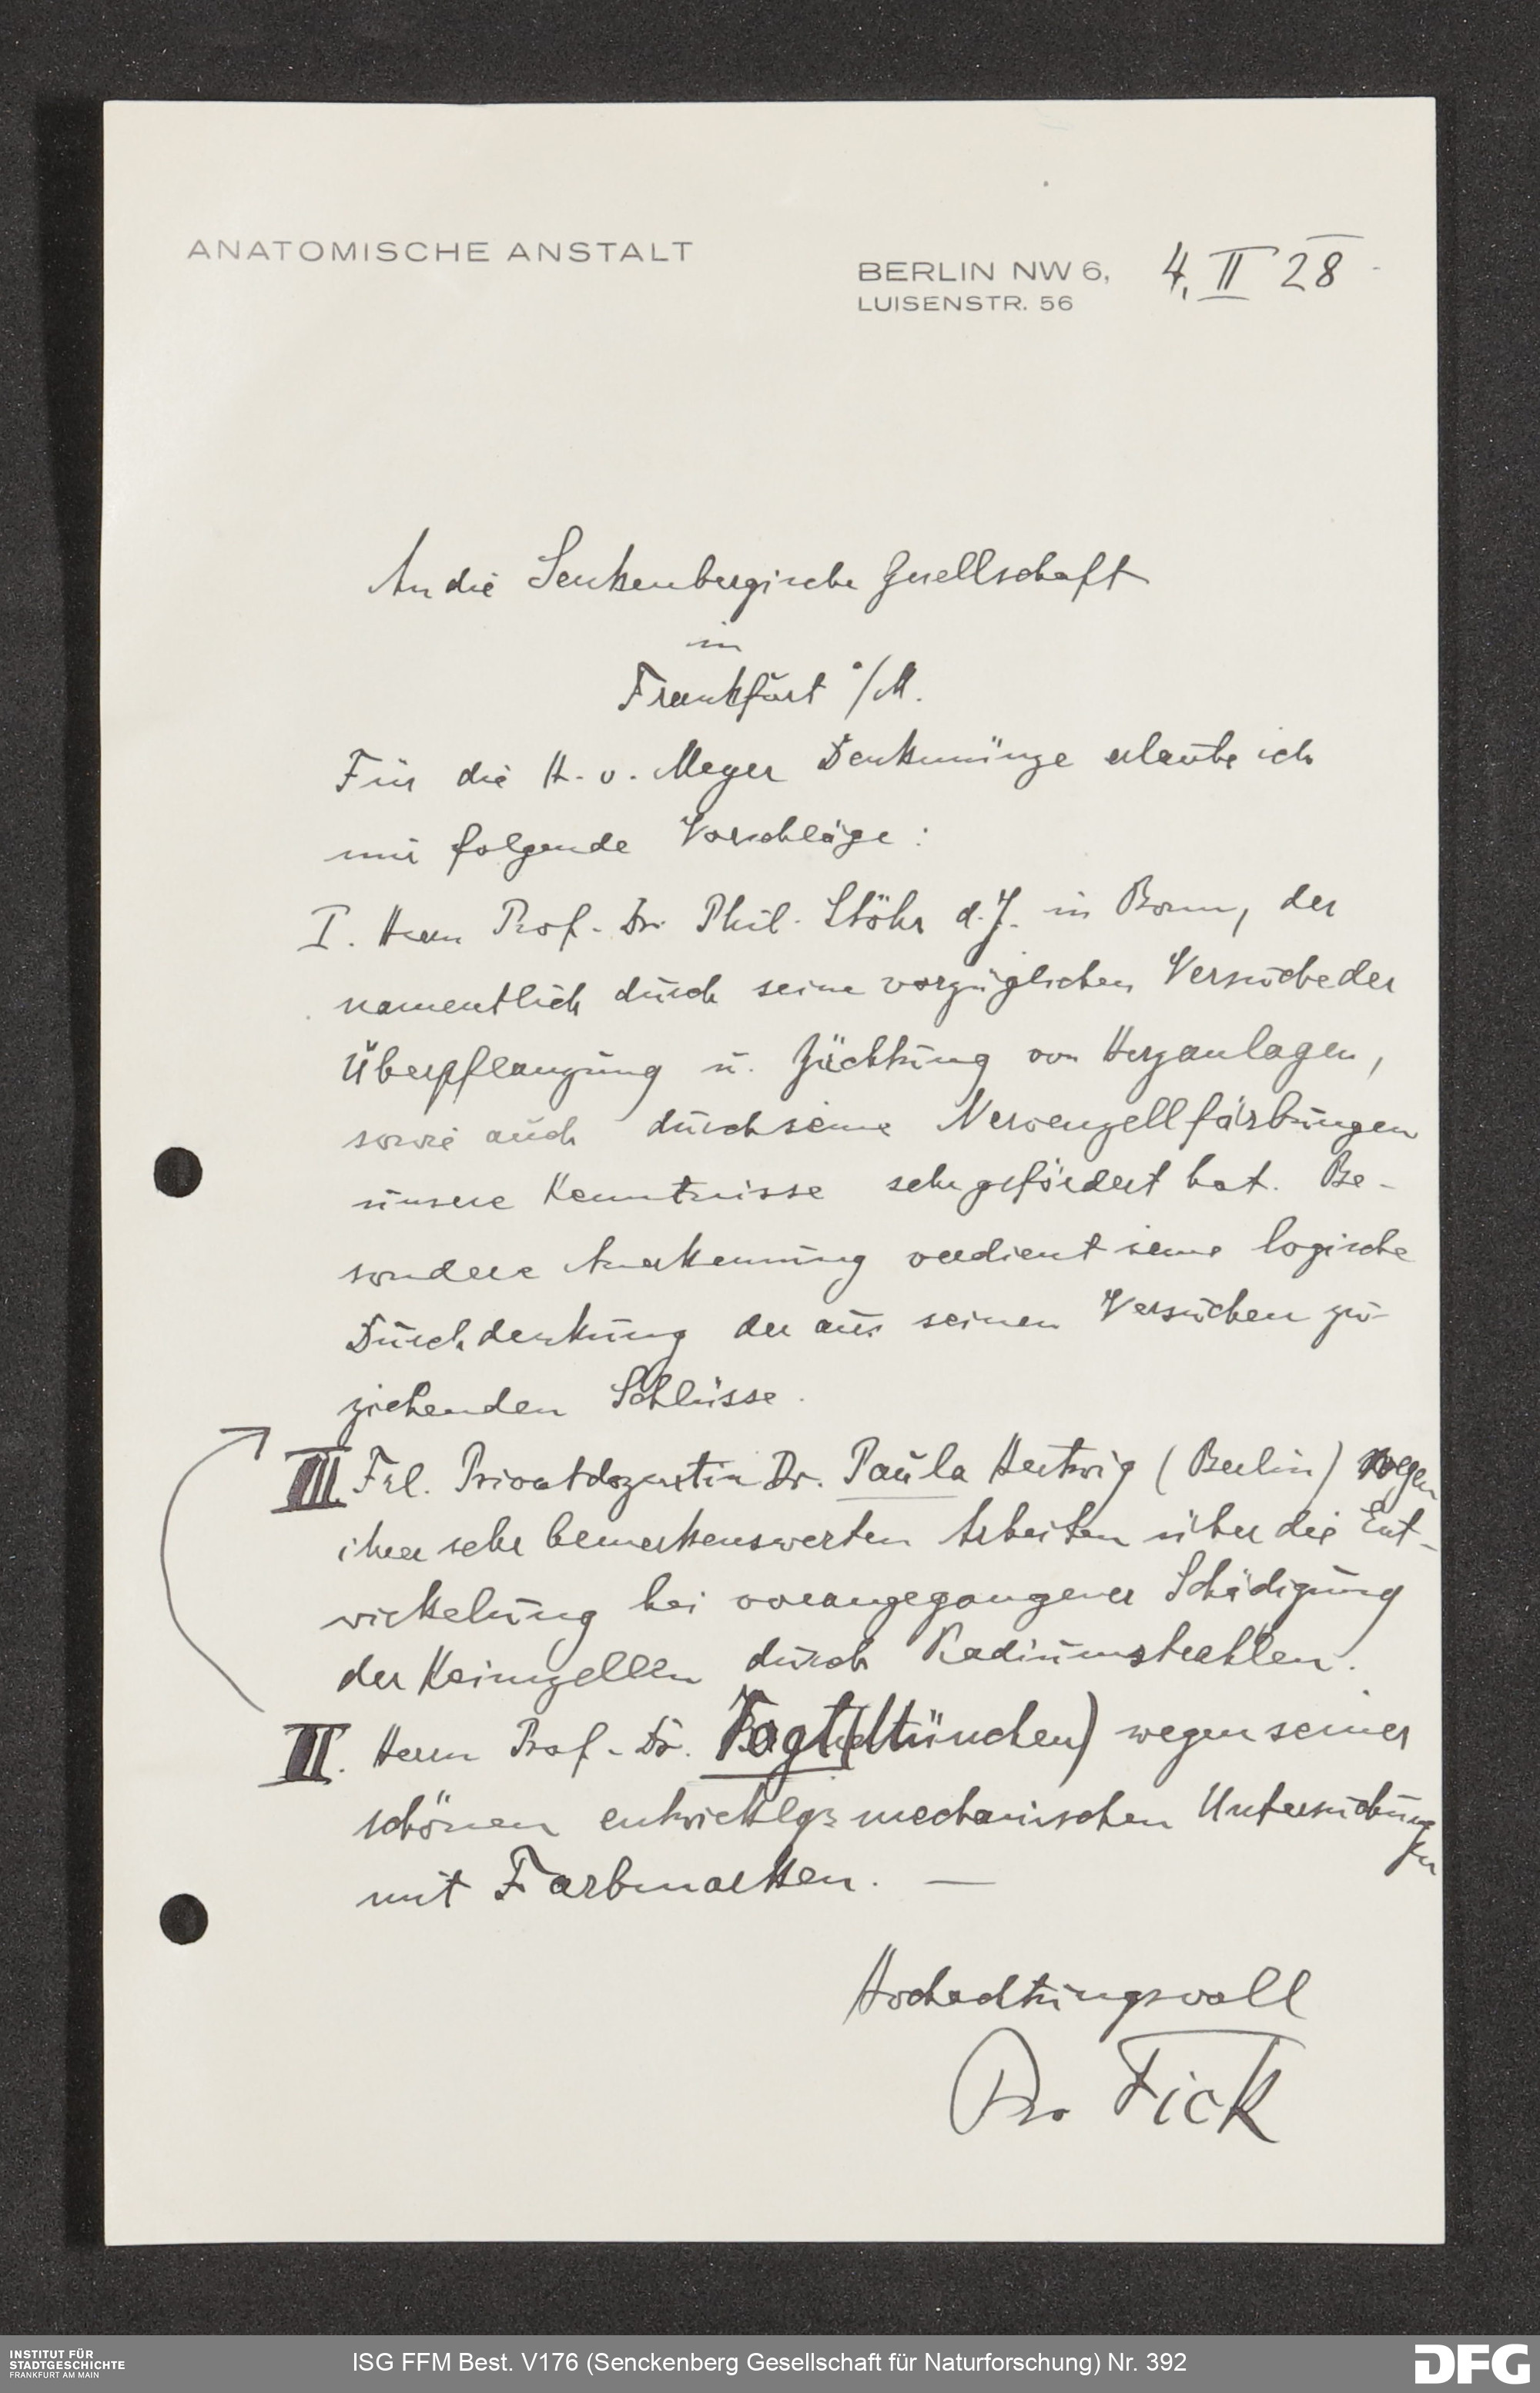 ANATOMISCHE ANSTALT
BERLIN NW 6, 4. II 28
LUISENSTR. 56
An die Senkenbergische Gesellschaft
in
Frankfurt a/M.
Für die H. v. Meyer Denkmünze erlaube ich
mir folgende Vorschläge:
I. Herrn Prof. Dr. Phil. Stöhr d. J. in Bonn, der
namentlich durch seine vorzüglichen Versuche der
Überpflanzung u. Züchtung von Herzanlagen,
sowie auch durch seine Nervenzellfärbungen
unsere Kenntnisse sehr gefördert hat. Be-
sondere Anerkennung verdient seine logische
Durchdenkung der aus seinen Versuchen zu
ziehenden Schlüsse.
III. Frl. Privatdozentin Dr. Paula Hertwig (Berlin) wegen
ihrer sehr bemerkenswerten Arbeiten über die Ent-
wickelung bei vorangegangener Schädigung
der Keimzellen durch Radiumstrahlen.
II. Herrn Prof. Dr. Vogt (München) wegen seiner
schönen entwicklgs mechanischen Untersuchungen
mit Farbmarken. —
Hochachtungsvoll
Dr. Fick
INSTITUT FÜR
STADTGESCHICHTE
FRANKFURT AM MAIN
ISG FFM Best. V176 (Senckenberg Gesellschaft für Naturforschung) Nr. 392
DFG